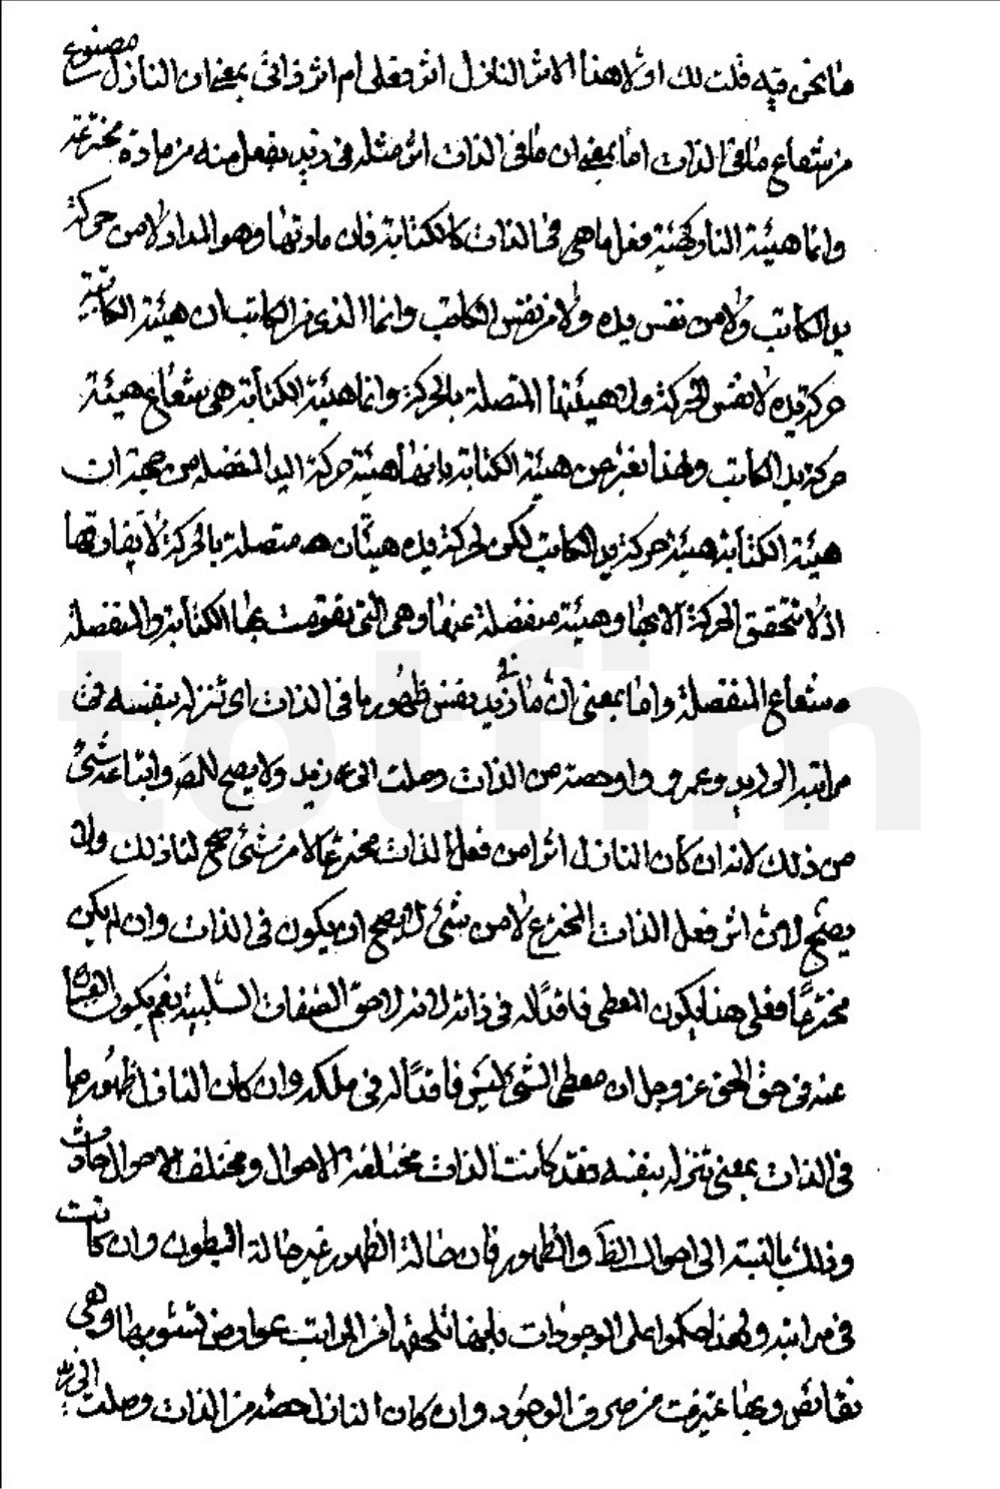 ما نحن فيه قلت لك اولا هذا الاثر النازل اثر فعلى ام اثر ذاتى بمعنى ان النازل مصنوع
من شعاع ما فى الذات اما بمعنى ان ما فى الذات اثر مثله فى زيد بفعل منه من مادة مخترعة
وانما هيئة النازل كهيئة فعل ما هى فى الذات كالكتابة فان مادتها وهو المداد لا من حركة
يد الكاتب ولا من نفس يده ولا من نفس الكاتب وانما الذى من الكاتب ان هيئة الكتابة
حركة يده لا نفس الحركة ولا هيئتها المتصلة بالحركة وانما هيئة الكتابة هى شعاع هيئة
حركة يد الكاتب ولهذا نعبر عن هيئة الكتابة بانها هيئة حركة اليد المنفصلة من جهة ان
هيئة الكتابة هيئة حركة يد الكاتب لكن لحركة يده هيئتان متصلة بالحركة لا تفارقها
اذ لا تتحقق الحركة الا بها وهيئة منفصلة عنها وهى التى تقومت بها الكتابة والمنفصلة
شعاع المتصلة واما بمعنى ان ما فى زيد نفس ظهور ما فى الذات اى تنزله بنفسه فى
مراتبه الى زيد وعمرو او حصة من الذات وصلت الى زيد ولا يصح وابتاعه شىء
من ذلك لانه ان كان النازل اثرا من فعل الذات مخترعا لا من شىء صح لنا ذلك وان
يصح لان اثر فعل الذات المخترع لا من شىء لا يصح ان يكون فى الذات وان لم يكن
مخترعا فعلى هذا يكون المعطى فاقدا له فى ذاته لانه الصفات السلبية نعم يكون
عنه فى حق الحق عز وجل ان معطى الشىء ليس فاقدا له فى ملكه وان كان النازل ظهور ما
فى الذات بمعنى تنزله بنفسه فقد كانت الذات مختلفة الاحوال ومختلف الاحوال حادث
وذلك بالنسبة الى احوال والظهور فان حالة الظهور غير حالة البطون وان كانت
فى مراتبه ولهذا حكموا على الوجودات بانها تلحقها من المراتب عوارض تشوبها وهى
نقائص وبها تميزت من صرف الوجود وان كان النازل حصة من الذات وصلت الى زيد